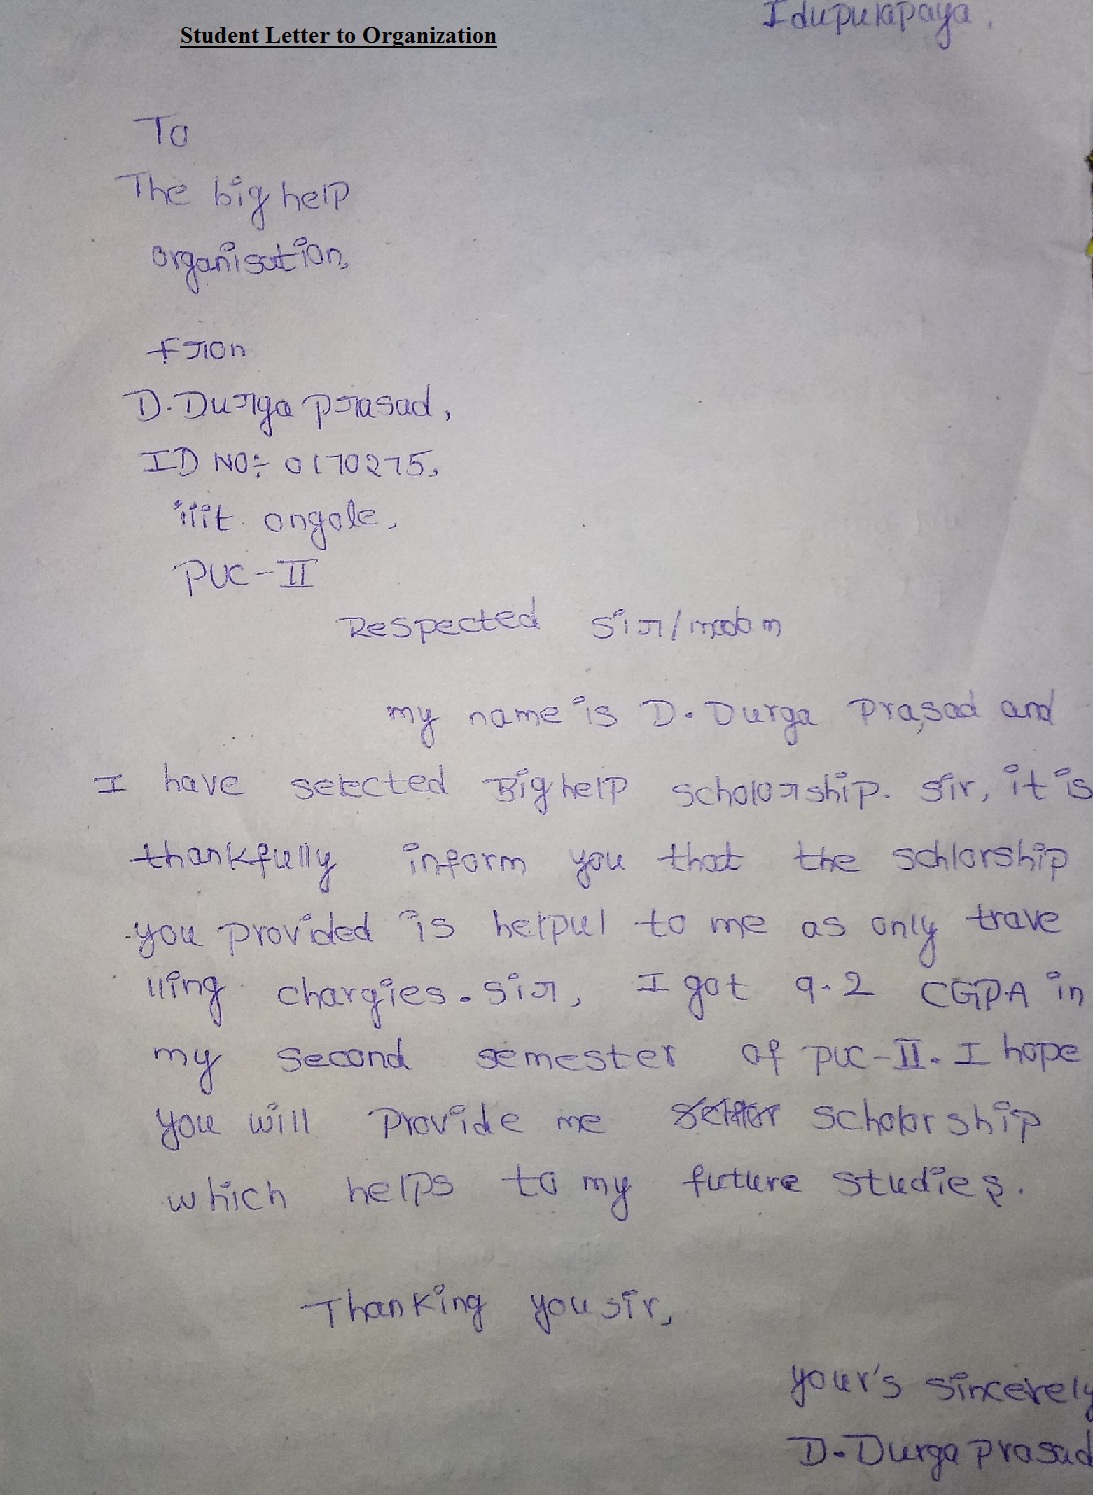 Idupulapaya.
Student Letter to Organization
To
The big help
organisation,
from
D. Durga prasad,
ID NO:- 0170275,
iiit ongole,
PUC-II
Respected sir/madam
my name is D. Durga Prasad and
I have selected Big help scholarship. sir, it is
thankfully inform you that the schlorship
you provided is helpul to me as only trave
lling chargies. sir, I got 9.2 CGPA in
my second semester of PUC-II. I hope
you will Provide me scholorship
which helps to my future studies.
Thanking you sir,
your's sincerely
D. Durga prasad